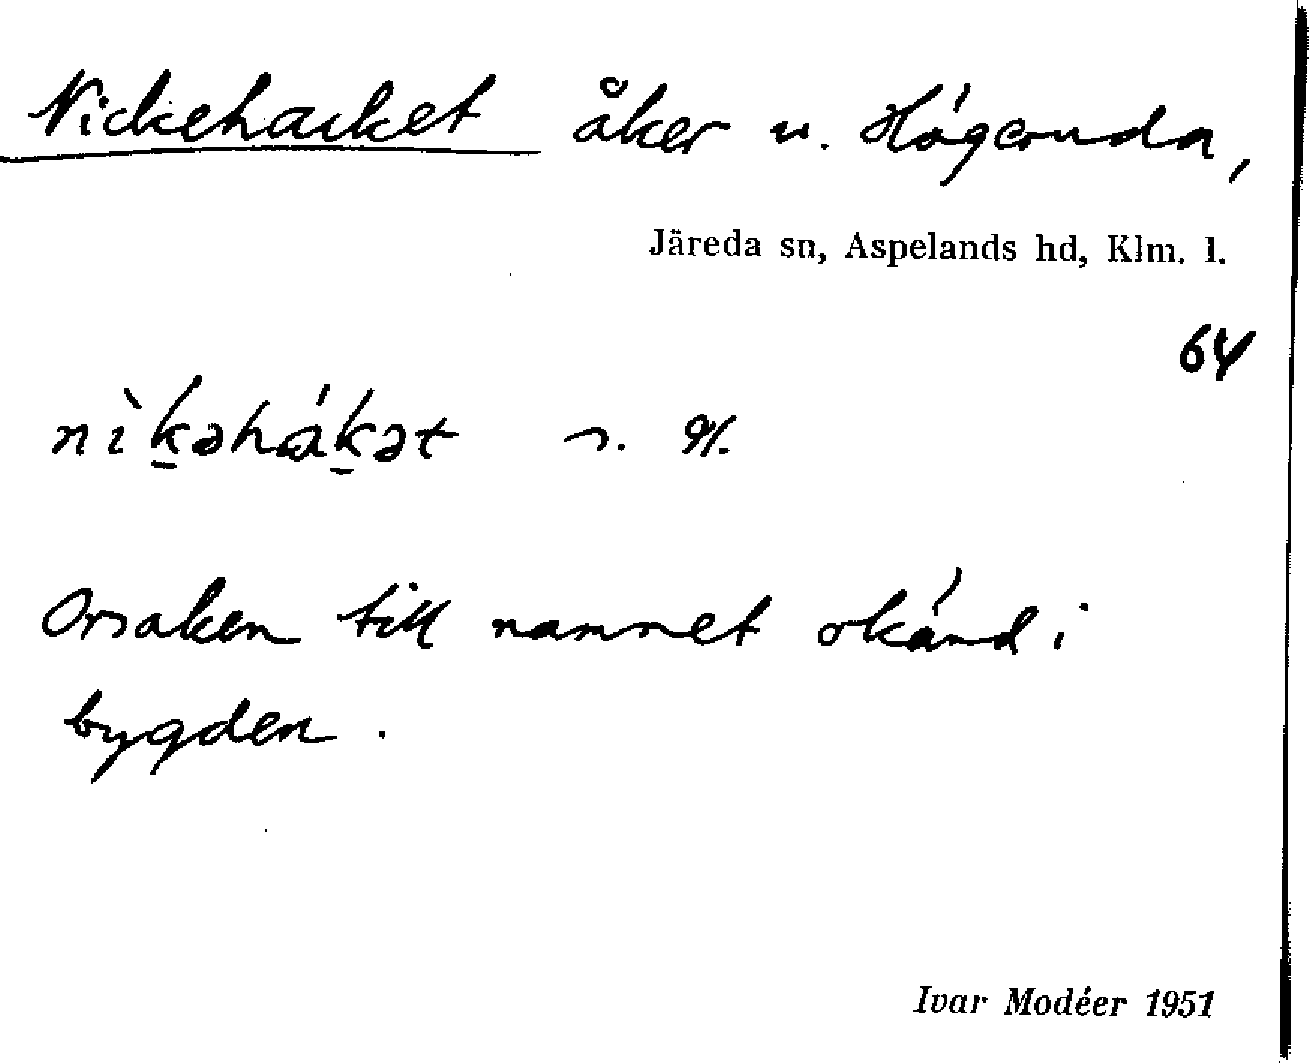 Nickehacket åker u. Högeruda,
Järeda sn, Aspelands hd, Klm. l.
64
nìk̠əhák̠ət n.
Orsaken till namnet okänd i
bygden.
Ivar Modéer 1951